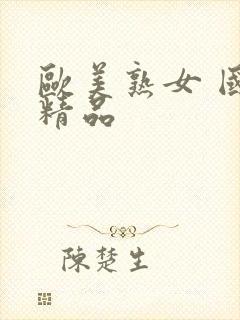 歐美熟女 國
精品
陳楚生